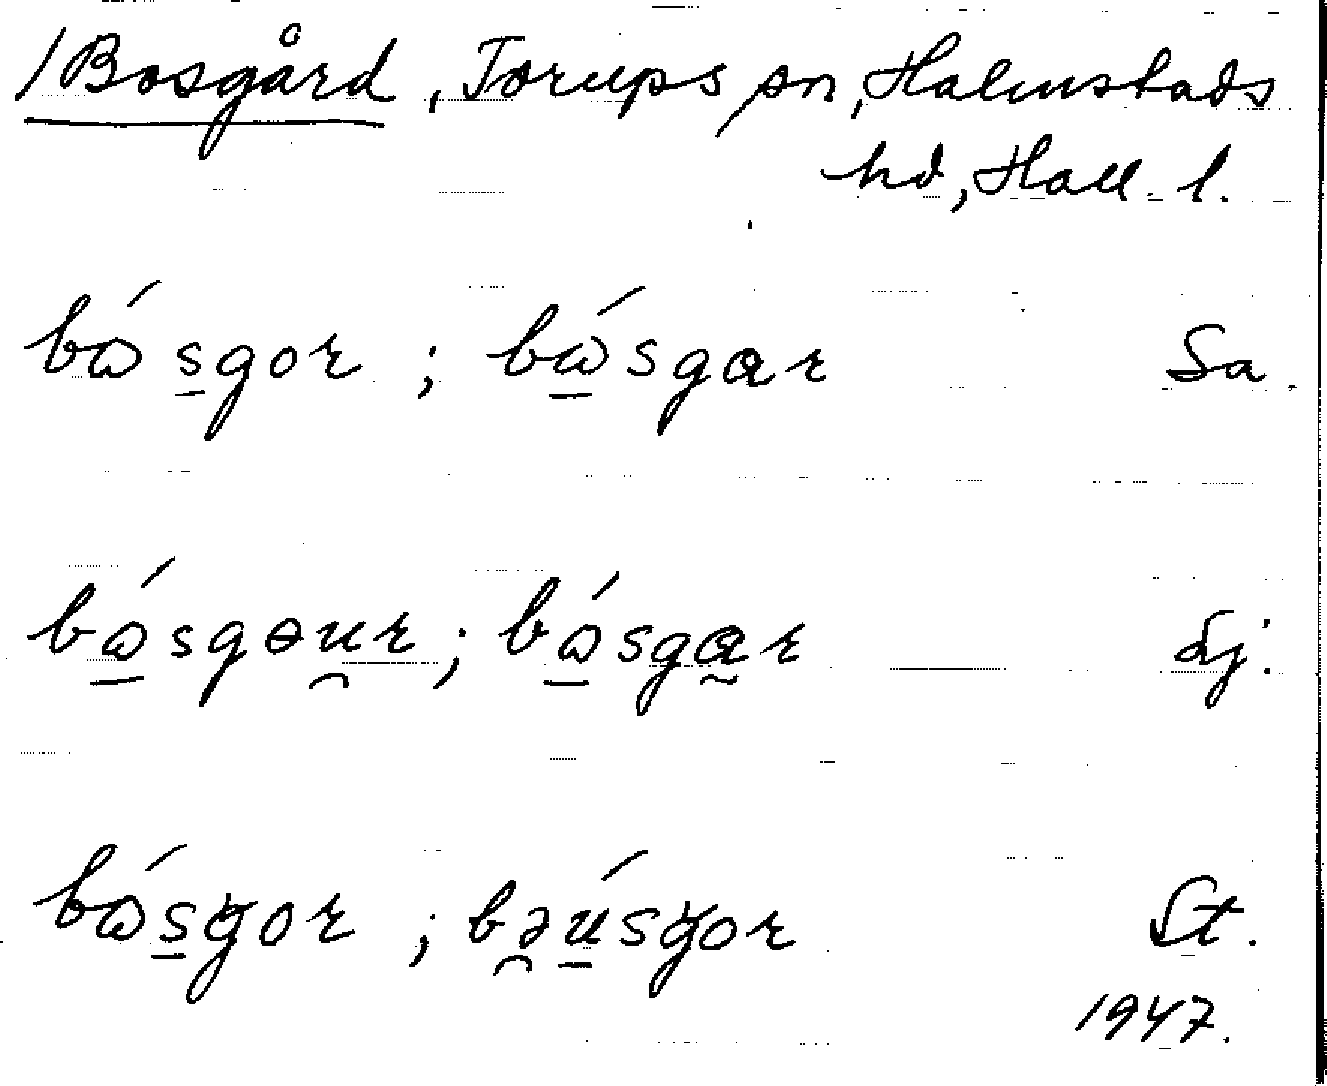 /Bosgård, Torups sn, Halmstads
hd, Hall. l.
bɷ́s̠gor ; bɷ̠́sgɑr Sa.
bɷ̠́sgɵu̯r ; bɷ̠́sgɑ̰r Lj.
bɷ́s̠ǥor ; bə̯ú̠sǥor St.
1947.